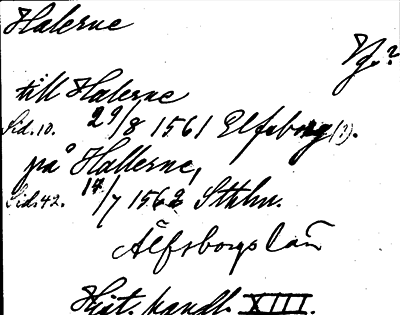 Halerne
Vg.?
till Halerne
Sid.10. 29/8 1561 Elfsborg(?).
på Hallerne,
Sid.42. 14/7 1562 Sthlm.
Älfsborgs län
Hist. handl. XIII.